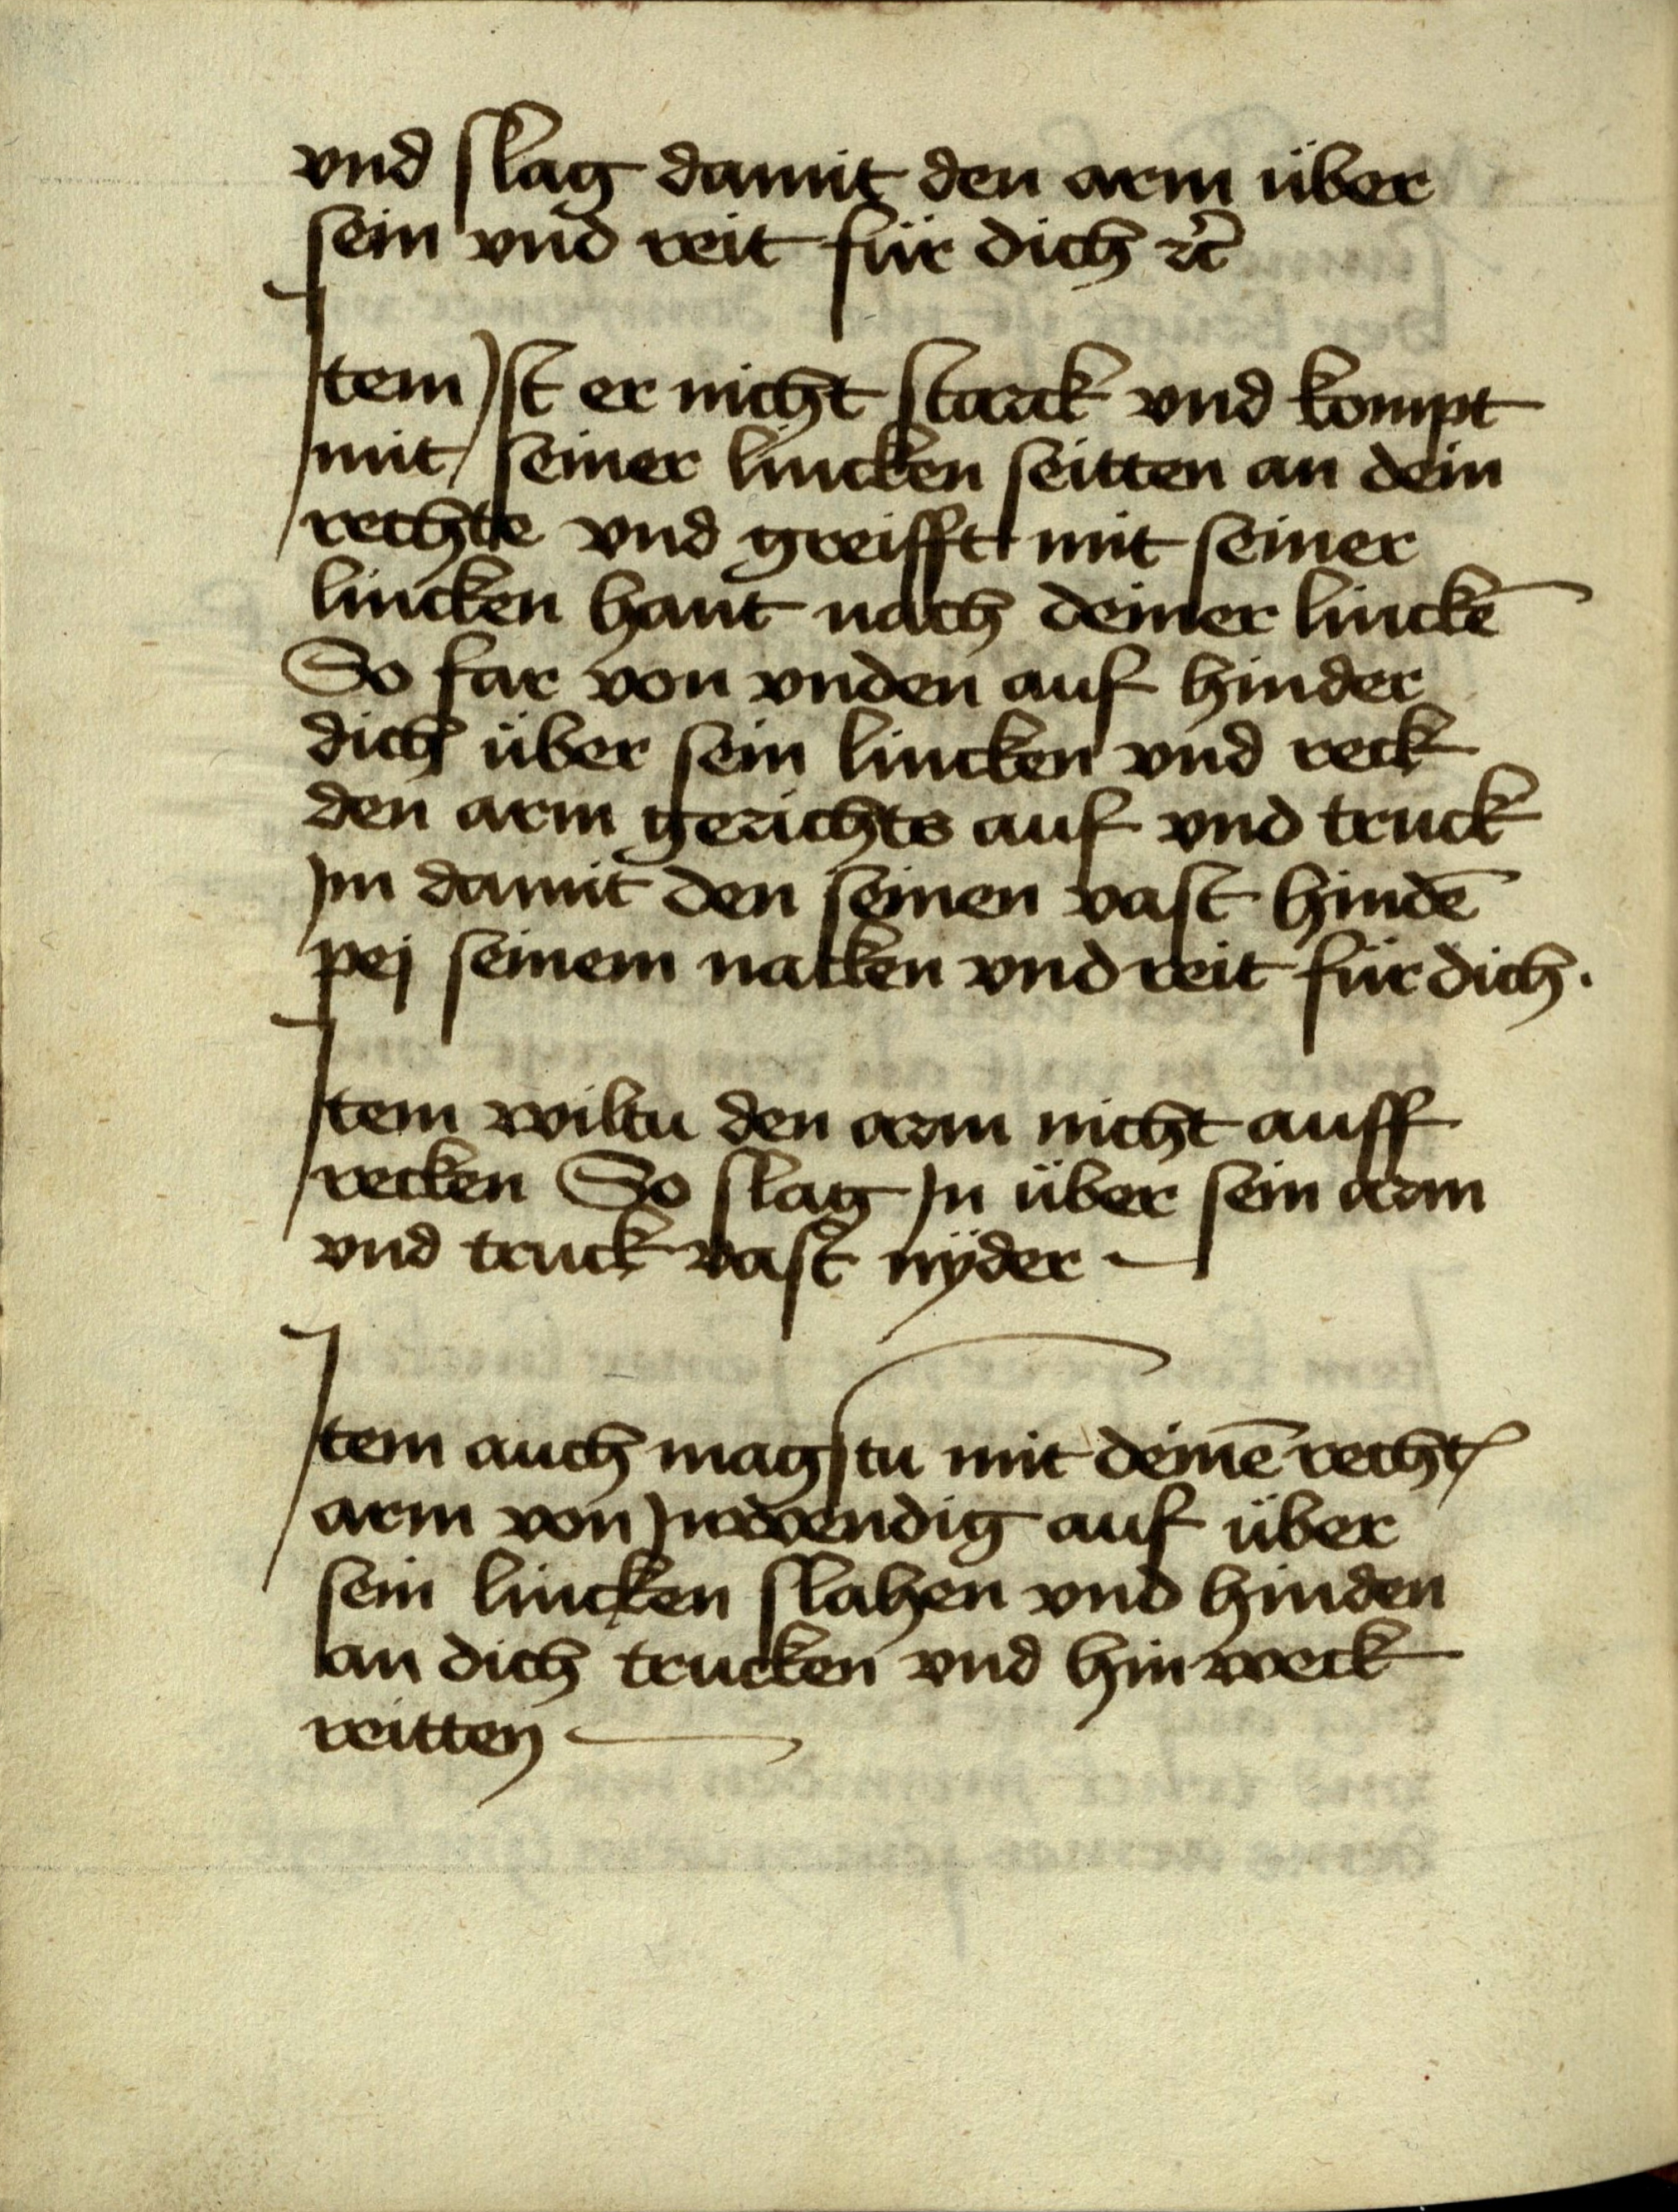 vnd slag damit den arm über
sein vnd reit für dich ꝛc̃
Item Ist er nicht starck vnd kompt
mit seiner lincken seitten an dein
rechte vnd greifft mit seiner
lincken hant nach deiner linckē
So far von vnden auf hinder
dich über sein lincken vnd reck
den arm gerichts auf vnd truck
Im damit den seinen vast hindē
pej seinem nacken vnd reit für dich.
Item wiltu den arm nicht auff
recken So slag In über sein arm
vnd truck vast nÿder
Item auch magstu mit deinē rechtꝭ
arm von Inwendig auf über
sein lincken slahen vnd hinden
an dich trucken vnd hin weck
reitten